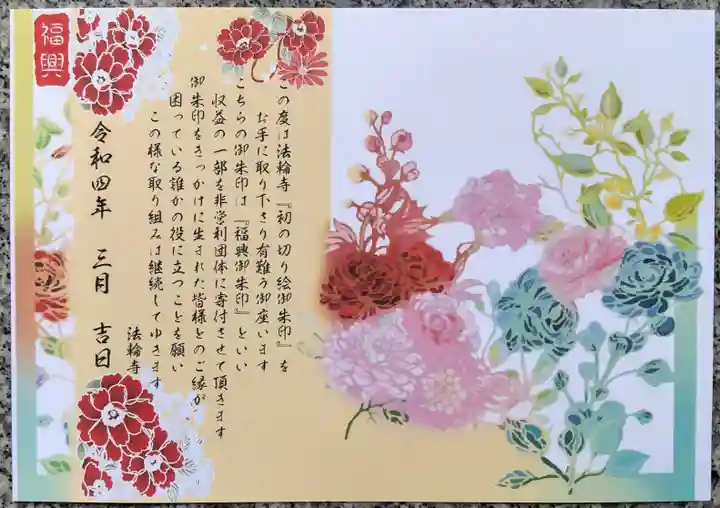 この度は法輪寺『初の切り絵御朱印』を
お手に取り下さり有難う御座います
こちらの御朱印は『福興御朱印』といい
収益の一部を非営利団体に寄付させて頂きます
御朱印をきっかけに生された皆様とのご縁が
困っている誰かの役に立つことを願い
この様な取り組みは継続してゆきます
法輪寺
令和四年 三月 吉日
福興